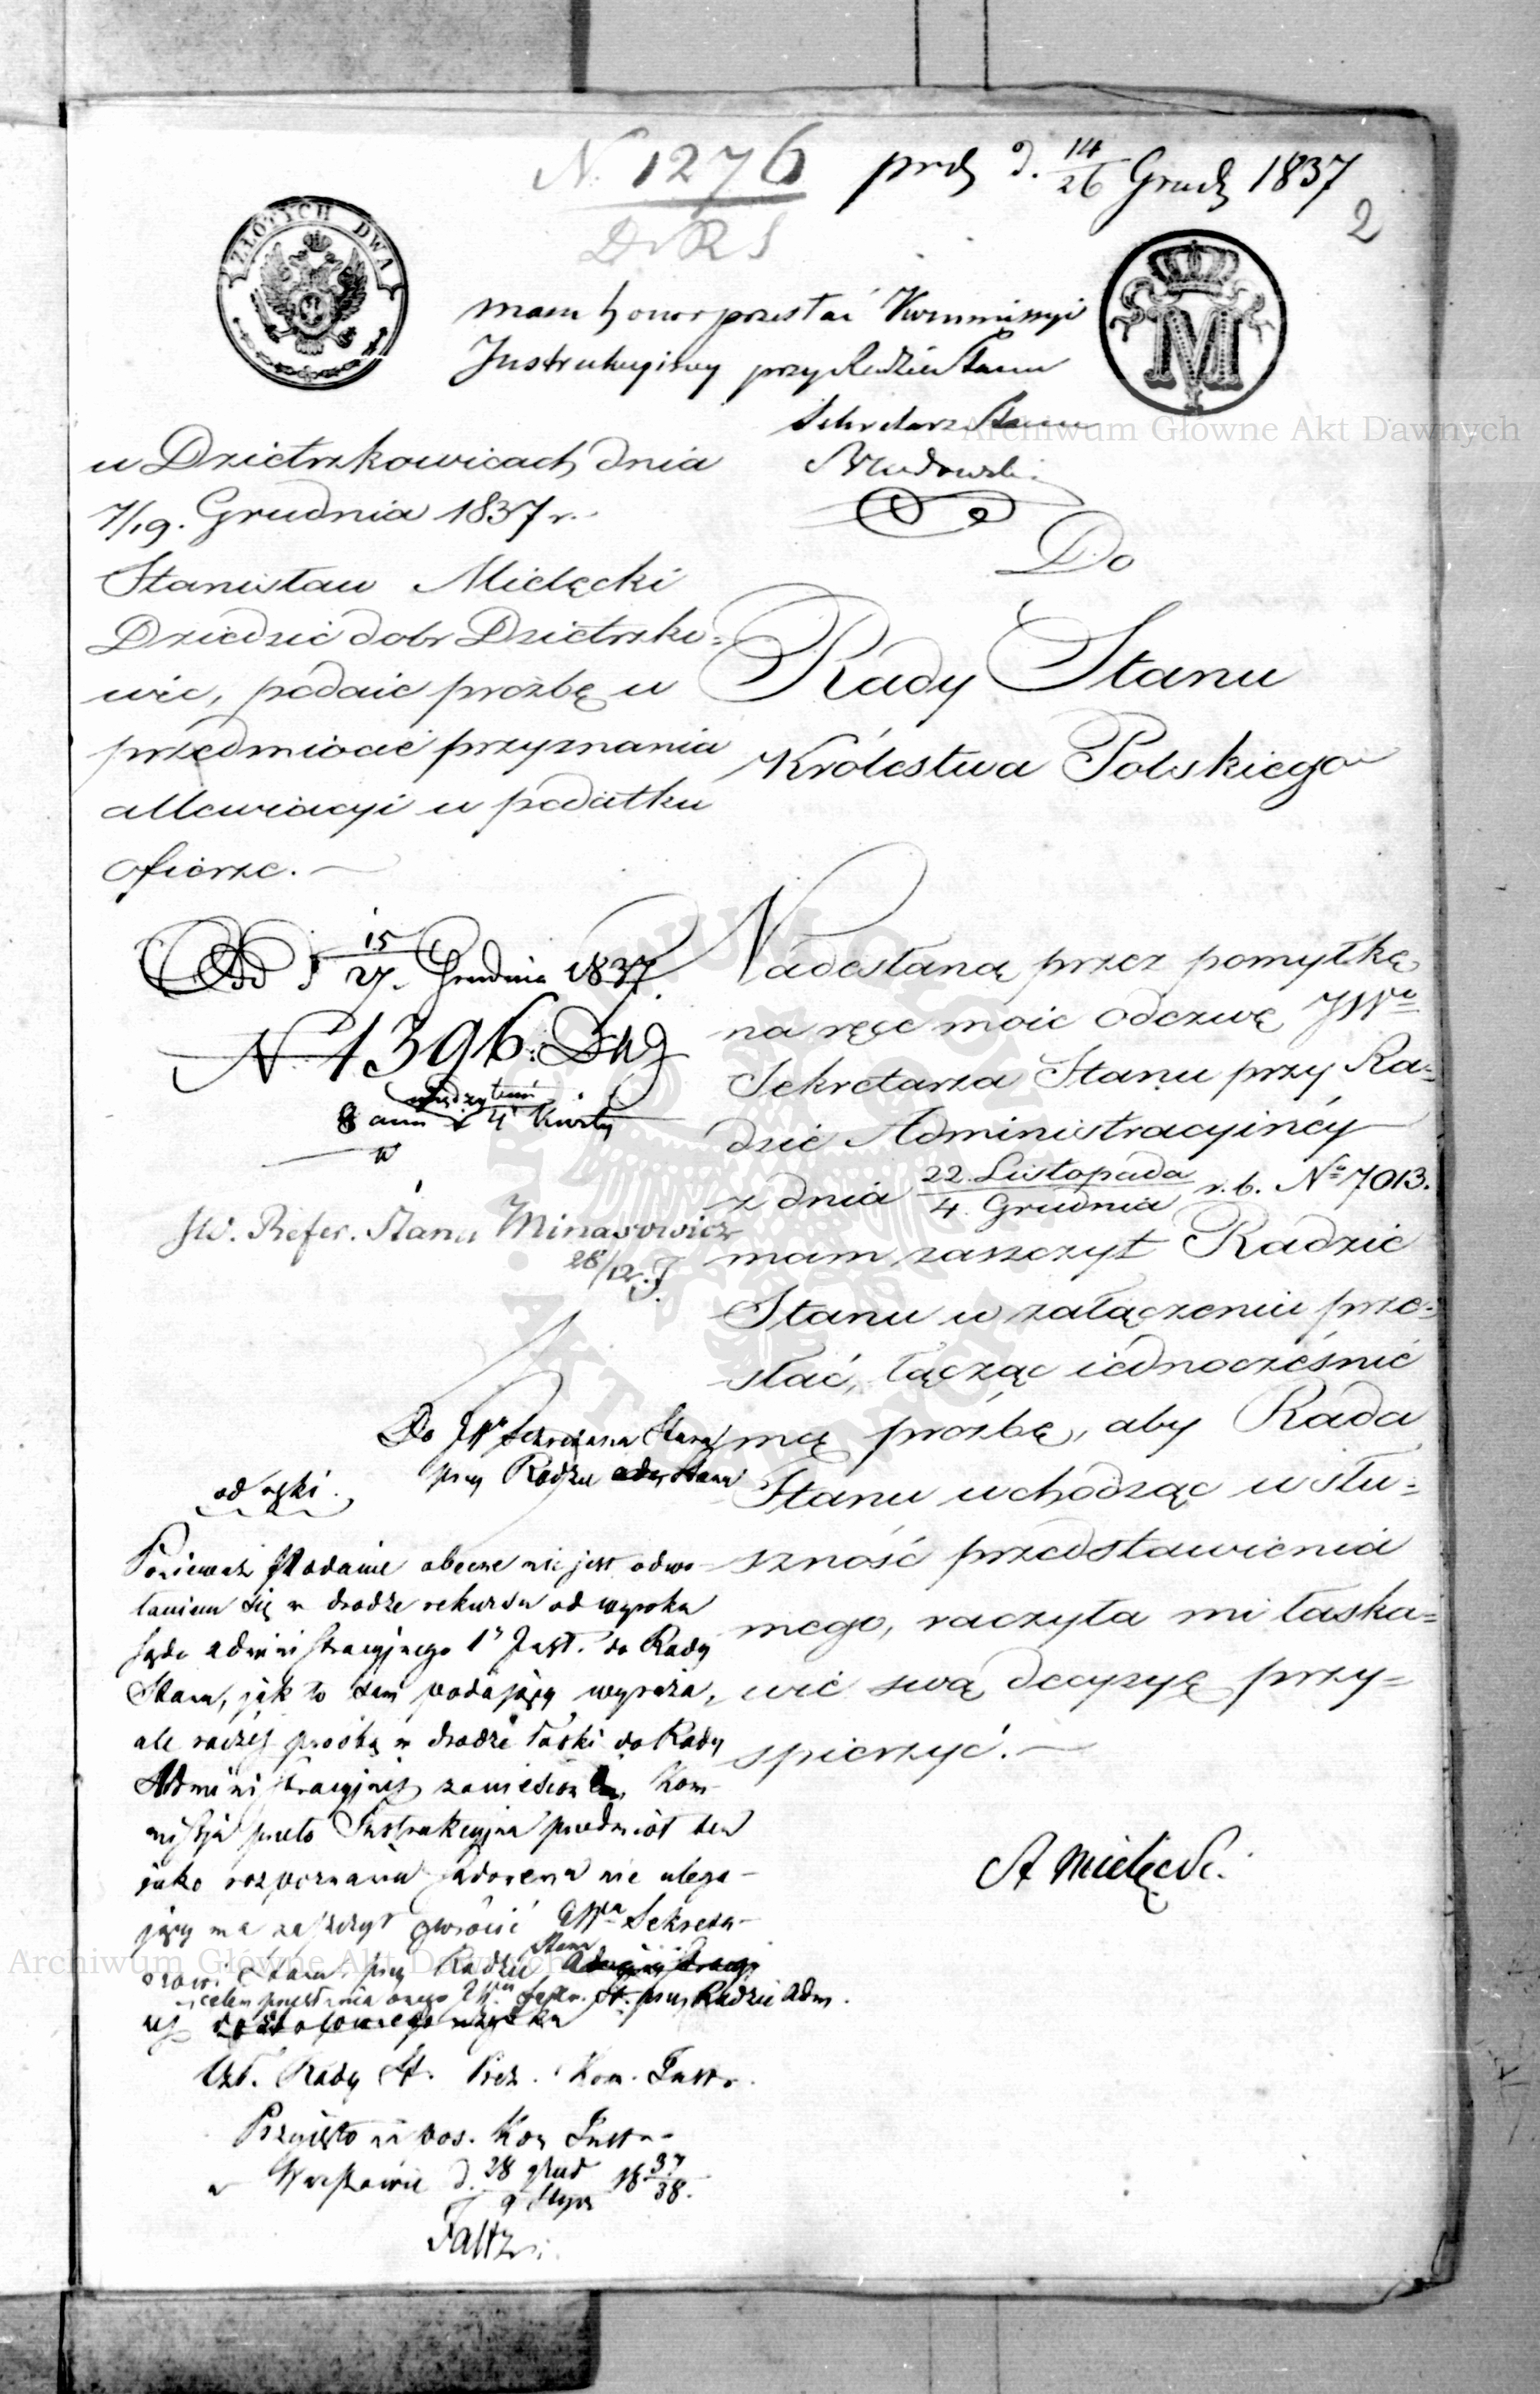 N. 1276 prd d. 14/26 Grud 1837
D. R S
2
ZŁOTYCH DWA
M
mam honor przesłać Kommissyi
Instrukcyiney przy Radzie Stanu
Sekretarz Stanu
w Dzietrzkowicach dnia
7/19. Grudnia 1837 r.
Stanisław Mielęcki
Dziedzic dobr Dzietrzko=
wic, podaie prożbę w
przedmiocie przyznania
allewiacyi w podatku
ofiarze.
Do
Rady Stanu
Królestwa Polskiego
Od d 15/27. Grudnia 1837.
N 1396.
JW. Refer. Stanu Minasowicz
28/12. J.
Nadesłaną przez pomyłkę
na ręce moie odezwę JWo
Sekretarza Stanu przy Ra=
dzie Administracyinéy
z dnia 22. Listopada/4. Grudnia r. b. No 7013.
mam zaszczyt Radzie
Stanu w załączeniu prze=
słać, łącząc iednocześnie
mą prożbę, aby Rada
Stanu wchodząc w słu=
szność przedstawienia
mego, raczyła mi łaska=
wie swą decyzyę przy=
spierzyć.
St Mielęcki
Do JWo Sekretarza Stanu
przy Radzie Stanu
odręki.
Ponieważ Podanie obecne nie jest odwo-
łaniem się w drodze rekursu od wyroku
Sądu administracyjnego 1ej Inst. do Rady
Stanu, jak to sam podający wyraża,
ale raczej prośbą w drodze łaski do Rady
Administracyjnej zaniesioną, Kom-
missja przeto Instrukcyjna przedmiot ten
jako rozpoznaniu Sądowemu nie ulega-
jący ma zaszczyt zwrócić JWu Sekreta-
rzowi Stanu przy Radzie Stanu
w celu przesłania onego JWu Sekr. St. przy Radzie Adm.
Czł. Rady St. Prez. Kom. Instr.
Przyjęto na pos. Kom Instr.
w Warszawie d. 28 grud/9 Stycz 18 37/38.
Archiwum Główne Akt Dawnych
Archiwum Główne Akt Dawnych